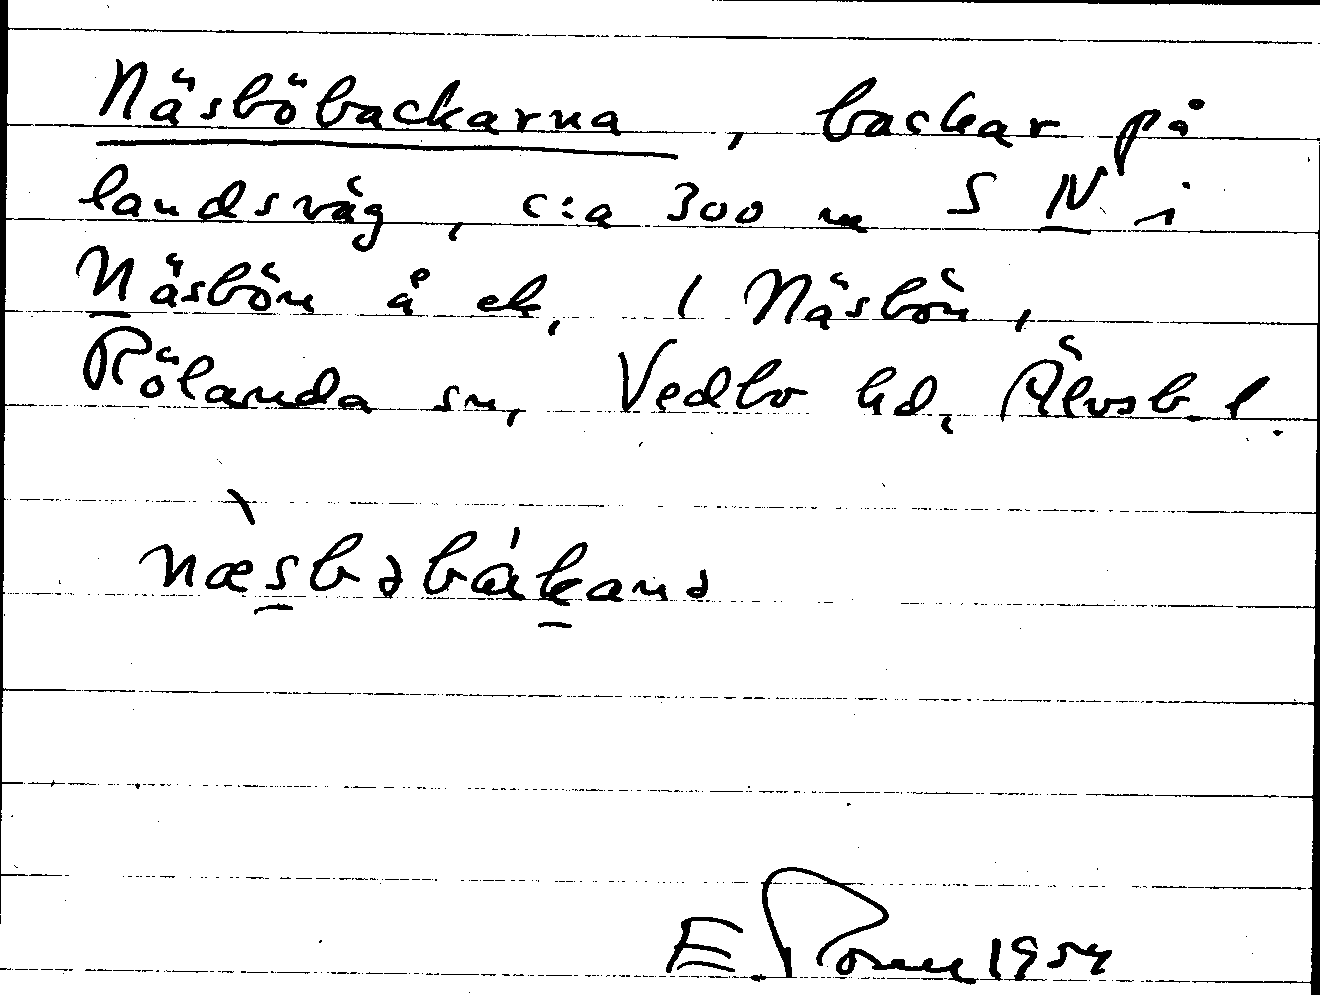 Näsböbackarna, backar på
landsväg, c:a 300 m S N i
Näsbön å ek. 1 Näsbön,
Rölanda sn, Vedbo hd, Älvsb. l.
næsbəbákanə
E. 1954